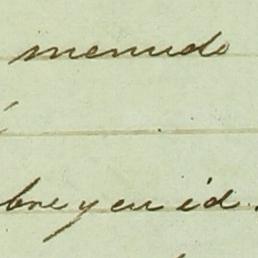 menudo
bre y en id.